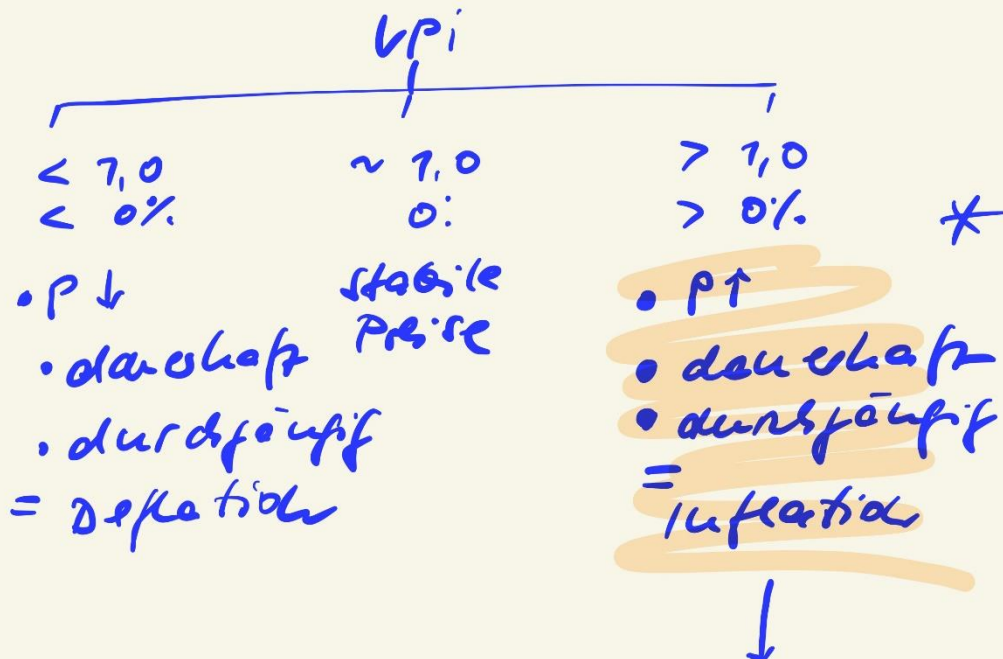 VPi
< 1,0
< 0%
• P ↓
• dauerhaft
• durchgängig
= Deflation
~ 1,0
0%
stabile
Preise
> 1,0
> 0%
• P↑
• dauerhaft
• durchgängig
=
Inflation